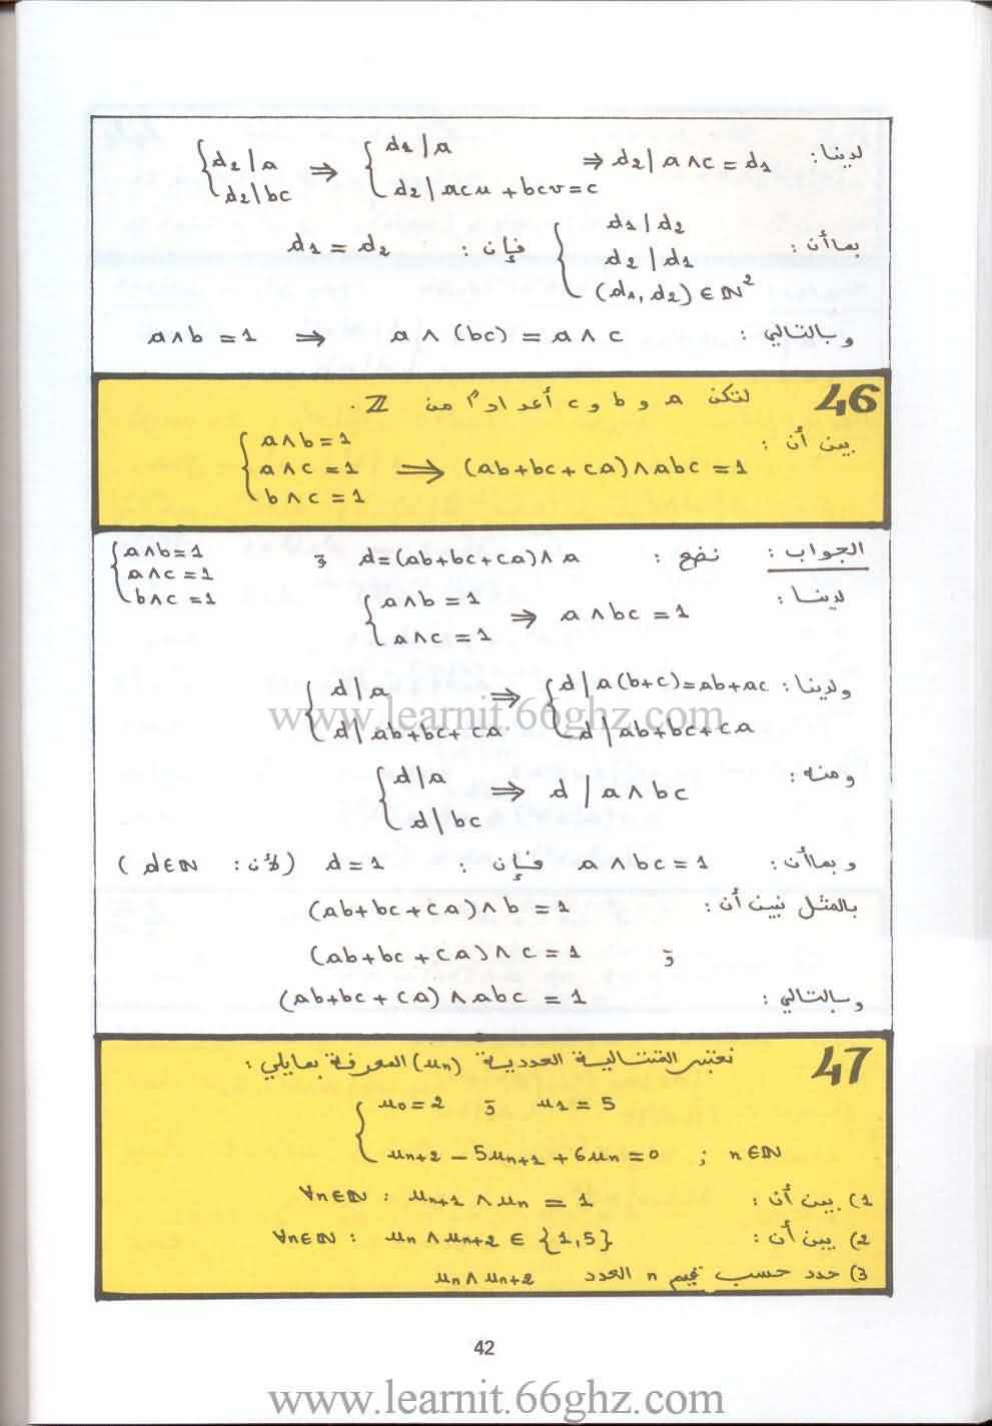 لدينا: {d₂|a ; d₂|bc ⇒ {d₂|a ; d₂|acu + bcv = c ⇒ d₂|a∧c = d₁
بما أن: {d₁|d₂ ; d₂|d₁ ; (d₁,d₂) ∈ ℕ² فإن: d₁ = d₂
وبالتالي: a∧b = 1 ⇒ a∧(bc) = a∧c
46 لتكن a و b و c أعدادا من ℤ.
بين أن: {a∧b=1 ; a∧c=1 ; b∧c=1 ⇒ (ab+bc+ca)∧abc = 1
الجواب: نضع: d=(ab+bc+ca)∧a و {a∧b=1 ; a∧c=1 ; b∧c=1
لدينا: {a∧b=1 ; a∧c=1 ⇒ a∧bc = 1
ولدينا: {d|a ; d|ab+bc+ca ⇒ {d|a(b+c)=ab+ac ; d|ab+bc+ca
www.learnit.66ghz.com
ومنه: {d|a ; d|bc ⇒ d|a∧bc
وبما أن: a∧bc=1 فإن: d=1 (لأن: d∈ℕ)
بالمثل نبين أن: (ab+bc+ca)∧b = 1
و (ab+bc+ca)∧c = 1
وبالتالي: (ab+bc+ca)∧abc = 1
47 نعتبر المتتالية العددية (uₙ) المعرفة بمايلي:
{u₀=2 و u₁=5
uₙ₊₂ − 5uₙ₊₁ + 6uₙ = 0 ; n∈ℕ
1) بين أن: ∀n∈ℕ : uₙ₊₁∧uₙ = 1
2) بين أن: ∀n∈ℕ : uₙ∧uₙ₊₂ ∈ {1,5}
3) حدد حسب قيم n العدد uₙ∧uₙ₊₂
42
www.learnit.66ghz.com